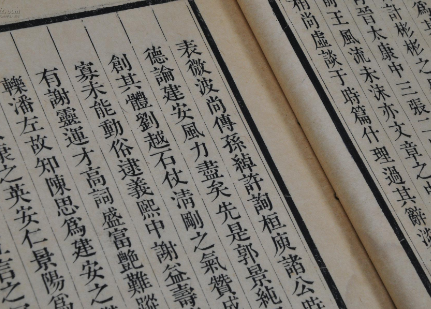 計彬彬之
晉太康中三張二
王風流未沫亦文章之中
尚虛談于時篇什理過其辭淡
表微波尚傳孫綽許詢桓庾諸公詩
德論建安風力盡矣先是郭景純
創其體劉越石仗清剛之氣贊成
寡未能動俗逮義熙中謝益壽
有謝靈運才高詞盛富艷難蹤
轢潘左故知陳思爲建安之
之英安仁景陽爲
言之